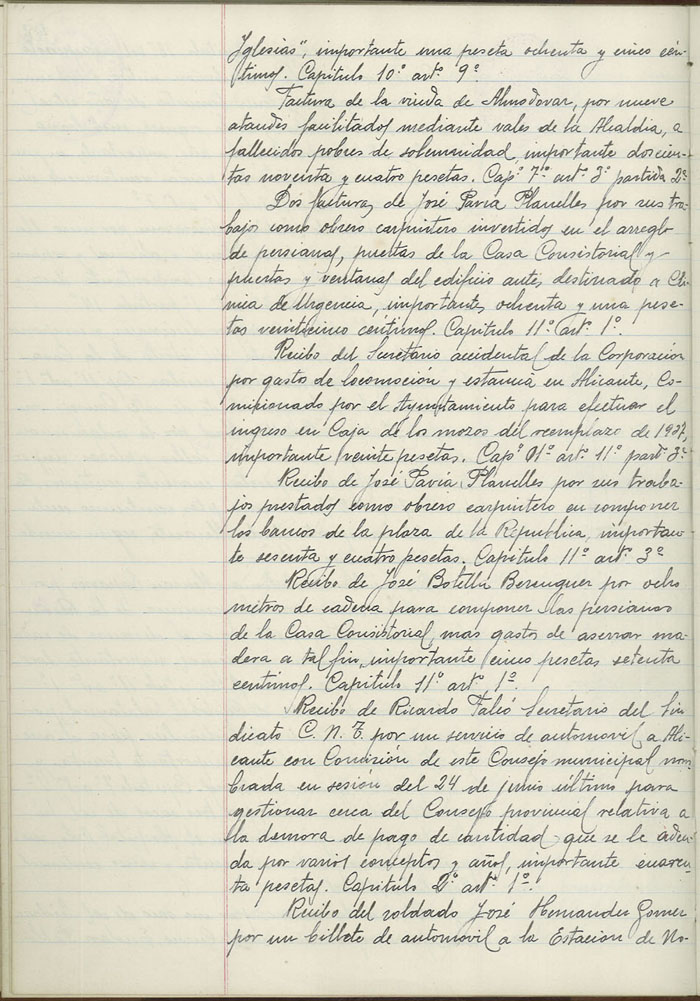 Yglesias", importante una peseta ochenta y cinco cén-
timos. Capitulo 10º artº 9º
Factura de la viuda de Almodovar, por nueve
ataudes facilitados mediante vales de la Alcaldia, a
fallecidos pobres de solemnidad, importante doscien-
tas noventa y cuatro pesetas. Capº 7º artº 3º partida 2ª
Dos facturas de José Pavia Planelles por sus tra-
bajos como obrero carpintero invertidos en el arreglo
de persianas, puertas de la Casa Consistorial y
puertas y ventanas del edificio antes destinado a Cli-
nica de Urgencia, importantes ochenta y una pese-
tas veinticinco céntimos. Capitulo 11º artº 1º.
Recibo del Secretario accidental de la Corporación
por gasto de locomoción y estancia en Alicante, Co-
misionado por el Ayuntamiento para efectuar el
ingreso en Caja de los mozos del reemplazo de 1937,
importante veinte pesetas. Capº 01º artº 11º partª 3ª
Recibo de José Pavia Planelles por sus traba-
jos prestados como obrero carpintero en componer
los bancos de la plaza de la Republica, importan-
te sesenta y cuatro pesetas. Capitulo 11º artº 3º
Recibo de José Botella Berenguer por ocho
metros de cadena para componer las persianas
de la Casa Consistorial, mas gastos de aserrar ma-
dera a tal fin, importante cinco pesetas setenta
centimos. Capitulo 11º artº 1º.
Recibo de Ricardo Falcó Secretario del Sin-
dicato C. N. T. por un servicio de automovil a Ali-
cante con Comisión de este Consejo municipal nom-
brada en sesión del 24 de junio último para
gestionar cerca del Consejo provincial relativa a
la demora de pago de cantidad que se le adeu-
da por varios conceptos y años, importante cuaren-
ta pesetas. Capitulo 2º artº 1º.
Recibo del soldado José Hernandez Gomez
por un billete de automovil a la Estacion de No-